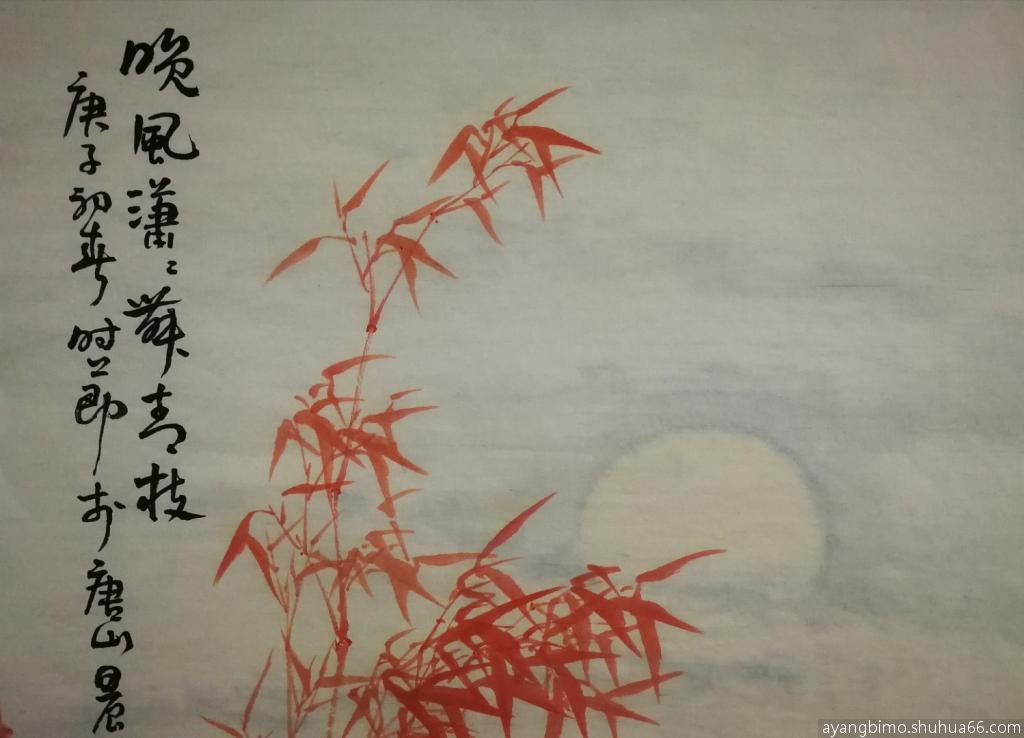 晚風瀟〻舞青枝
庚子初春时节於唐山晨
ayangbimo.shuhua66.com